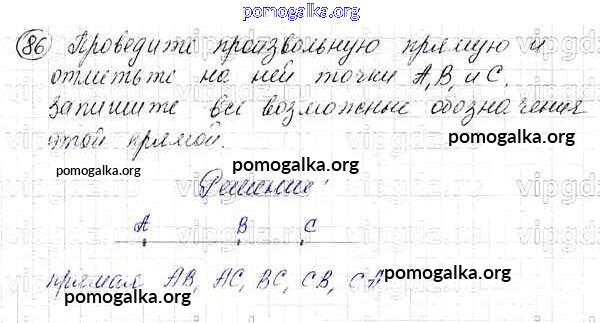 pomogalka.org
86 Проведите произвольную прямую и
отметьте на ней точки A, B, и C.
Запишите все возможные обозначения
этой прямой.
pomogalka.org
pomogalka.org
pomogalka.org
Решение:
vipgdz
A B C
прямая AB, AC, BC, CB, CA
pomogalka.org
pomogalka.org
pomogalka.org